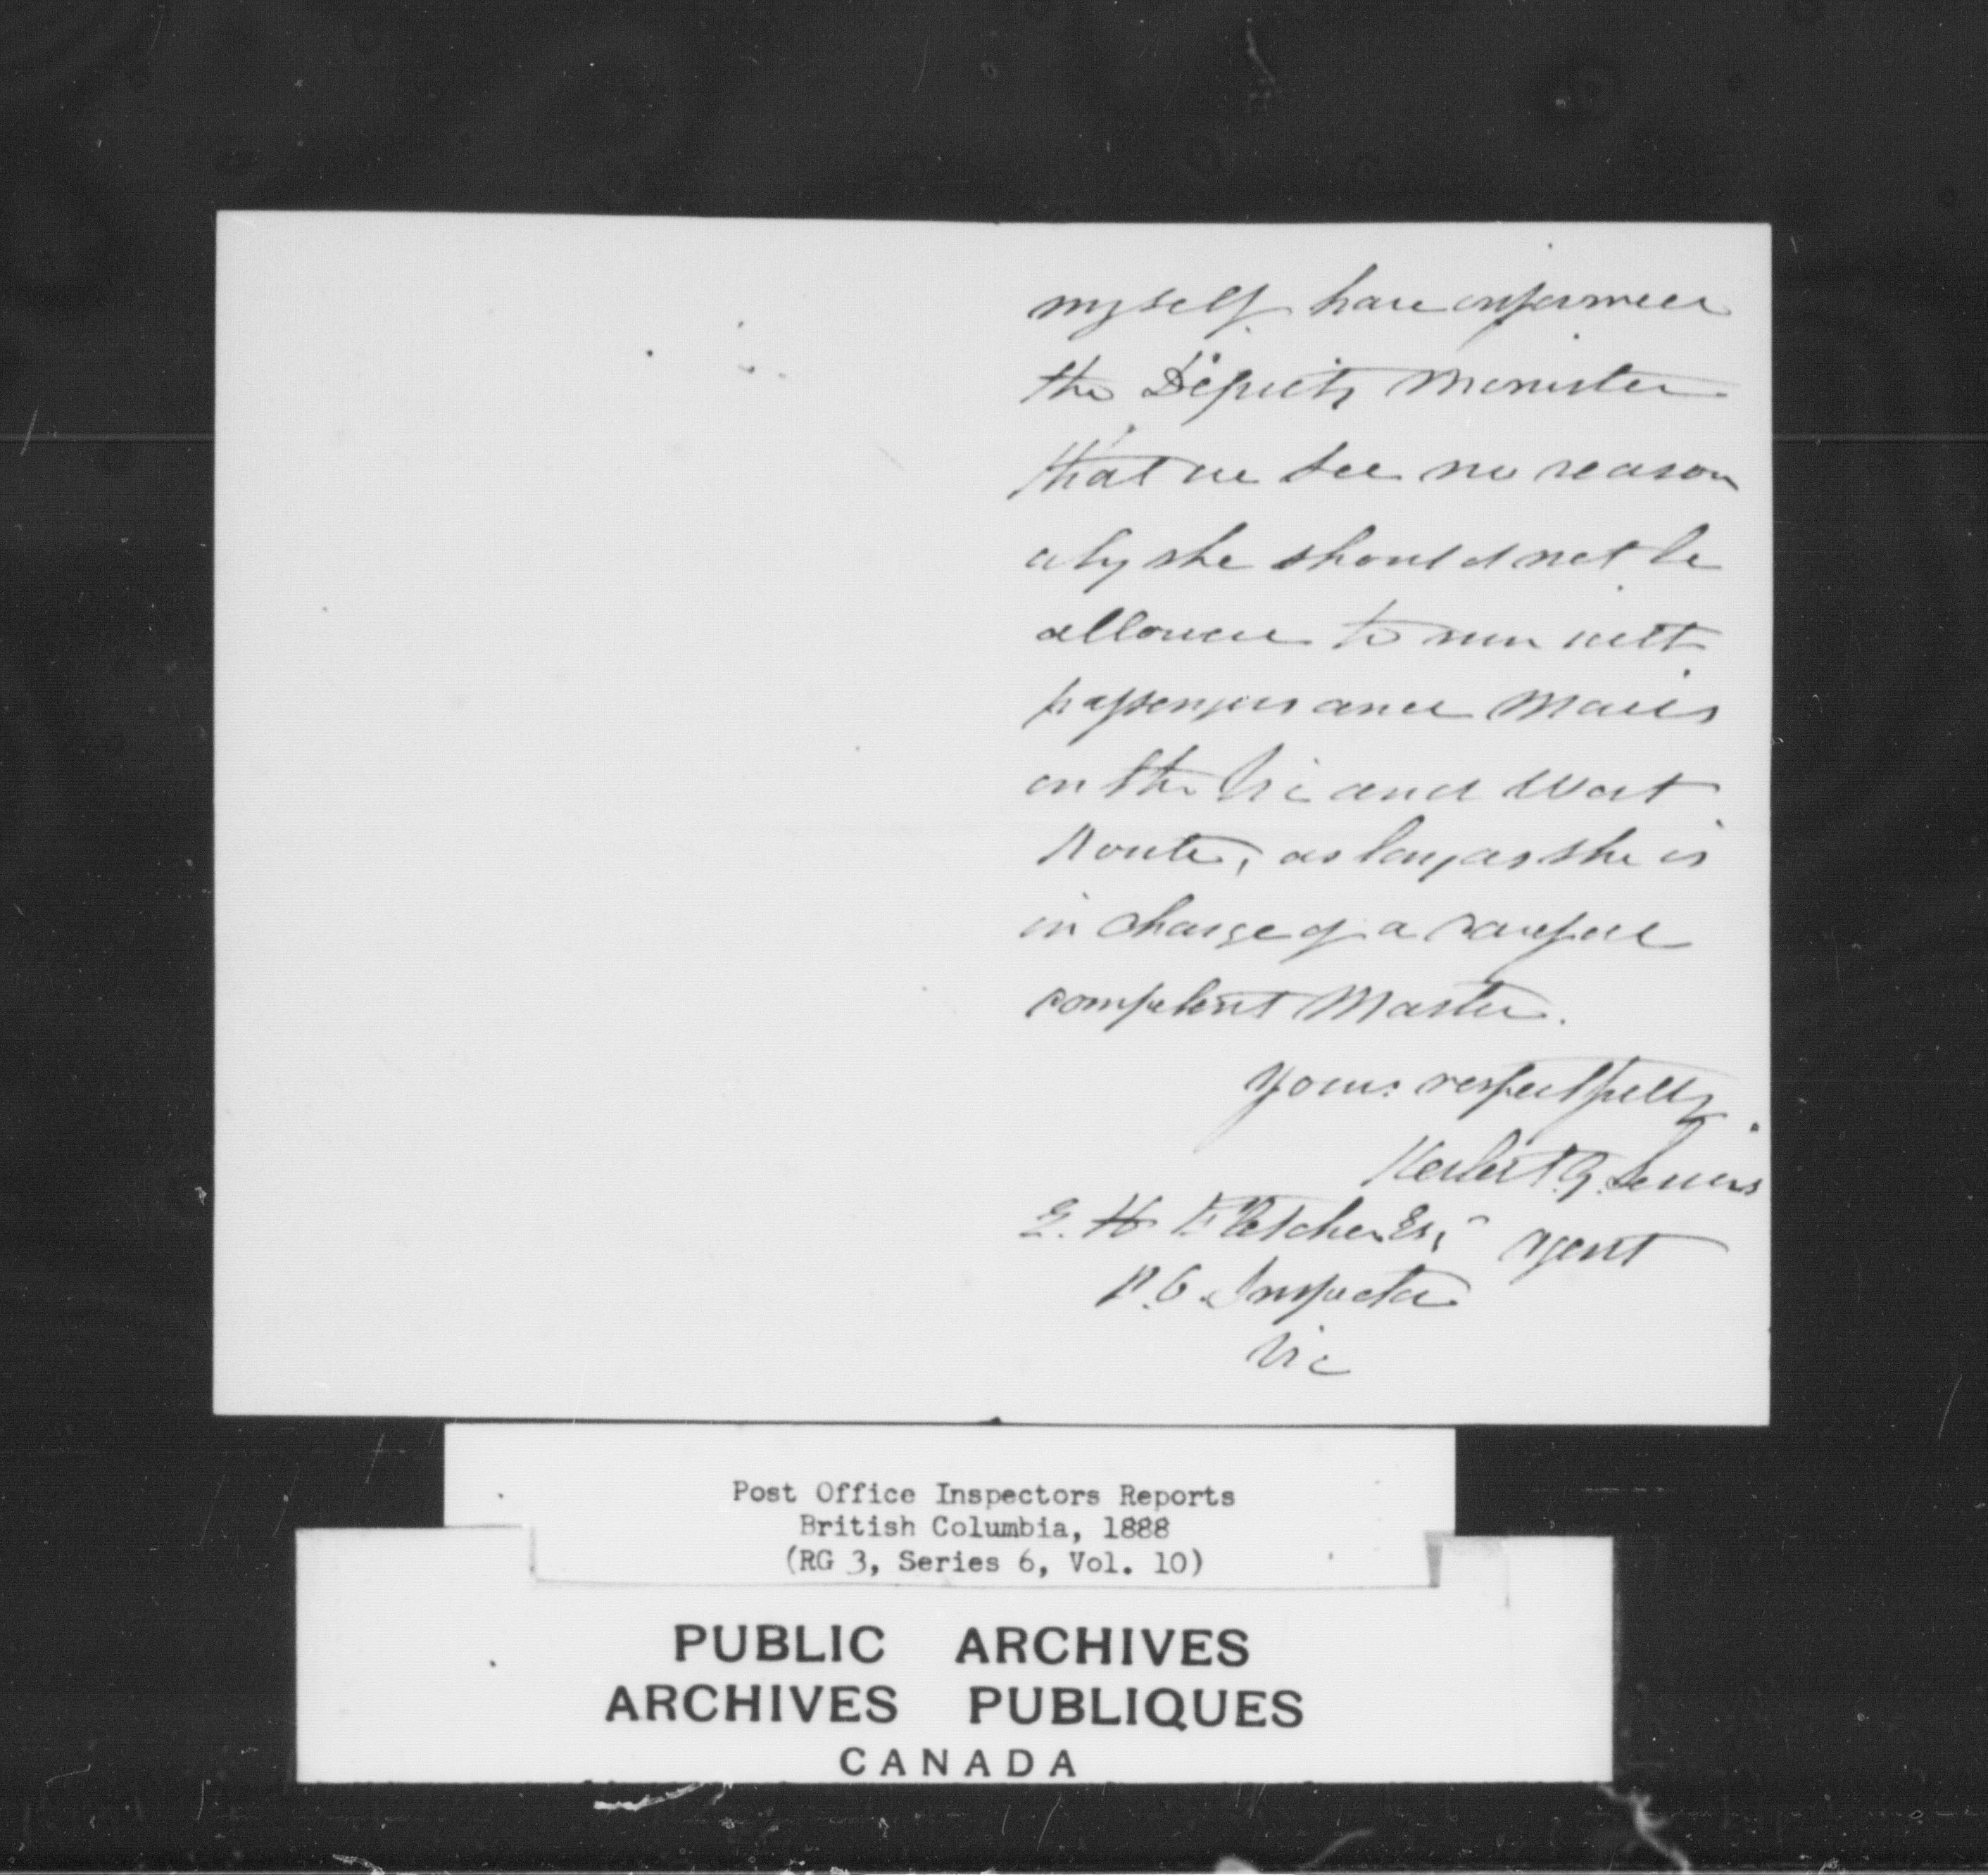 myself have informed
the Deputy Minister
that we see no reason
why she should not be
allowed to run with
passengers and Mails
on the Vic and West
Route, as long as she is
in charge of a careful
competent Master.
Yours respectfully
Herbert G. Lewis
Agent
E. H Fletcher Esq
P.O. Inspector
Vic
Post Office Inspectors Reports
British Columbia, 1888
(RG 3, Series 6, Vol. 10)
PUBLIC ARCHIVES
ARCHIVES PUBLIQUES
CANADA